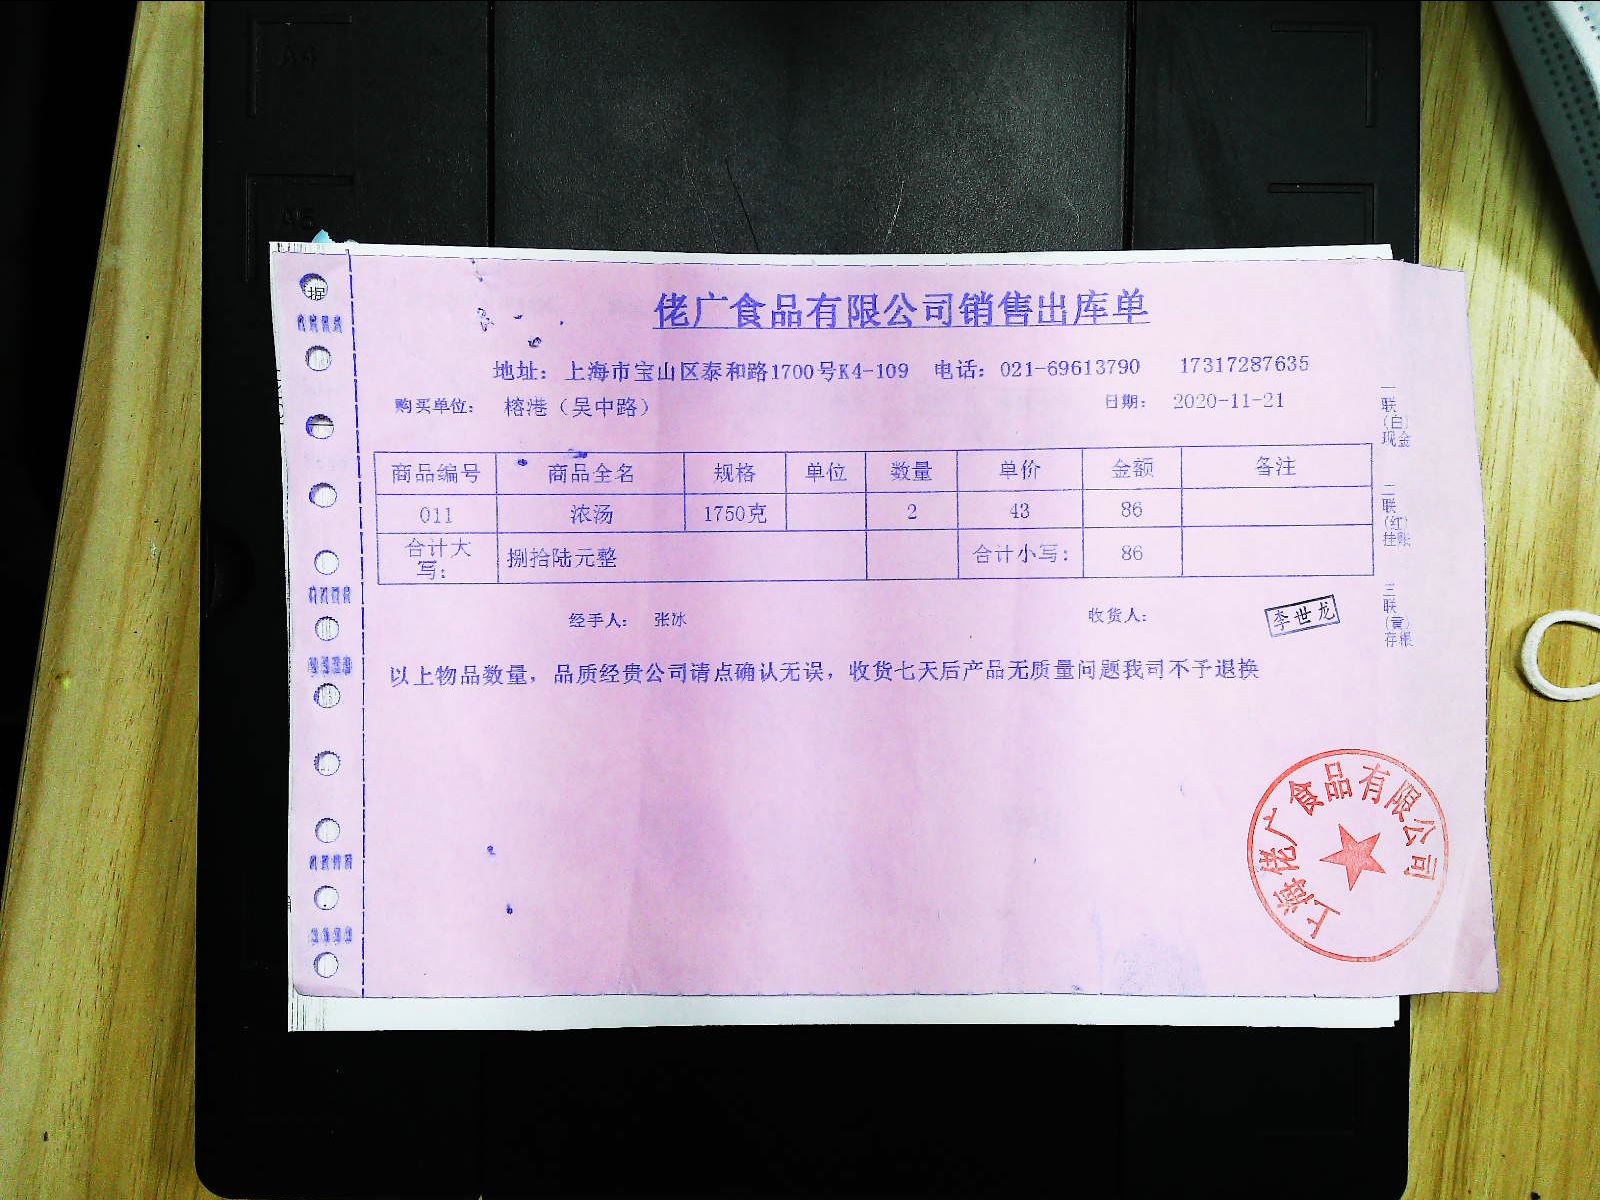 佬广食品有限公司销售出库单
地址：上海市宝山区泰和路1700号K4-109 电话：021-69613790 17317287635
购买单位： 榕港（吴中路） 日期： 2020-11-21
商品编号 商品全名 规格 单位 数量 单价 金额 备注
011 浓汤 1750克 2 43 86
合计大写： 捌拾陆元整 合计小写： 86
经手人： 张冰 收货人： 李世龙
以上物品数量，品质经贵公司请点确认无误，收货七天后产品无质量问题我司不予退换
一联（白）现金
二联（红）挂账
三联（黄）存根
上海佬广食品有限公司
A4
A5